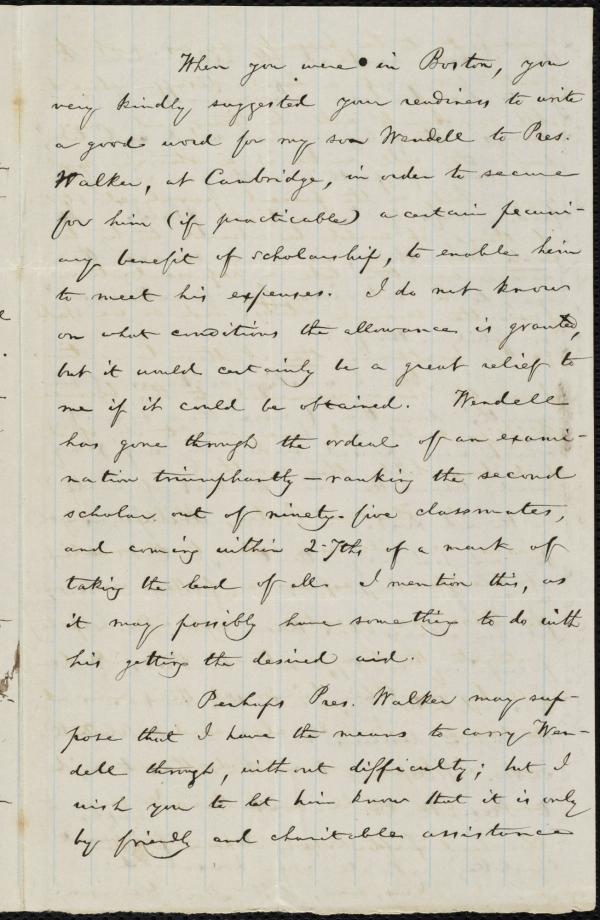 When you were in Boston, you
very kindly suggested your readiness to write
a good word for my son Wendell to Pres.
Walker, at Cambridge, in order to secure
for him (if practicable) a certain pecuni-
ary benefit of scholarship, to enable him
to meet his expenses. I do not know
on what conditions the allowance is granted,
but it would certainly be a great relief to
me if it could be obtained. Wendell
has gone through the ordeal of an exami-
nation triumphantly — ranking the second
scholar out of ninety-five classmates,
and coming within 2-7ths of a mark of
taking the lead of all. I mention this, as
it may possibly have something to do with
his getting the desired aid.
Perhaps Pres. Walker may sup-
pose that I have the means to carry Wen-
dell through, without difficulty; but I
wish you to let him know that it is only
by friendly and charitable assistance